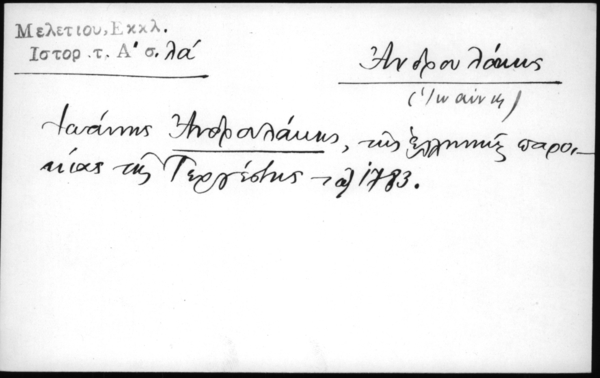 Μελετίου, Εκκλ.
Ιστορ. τ. Α' σ. λά
Ἀνδρουλάκης
(Ἰωάννης)
Ἰωάννης Ἀνδρουλάκης, τῆς ἑλληνικῆς παροι-
κίας τῆς Τεργέστης τῷ 1783.